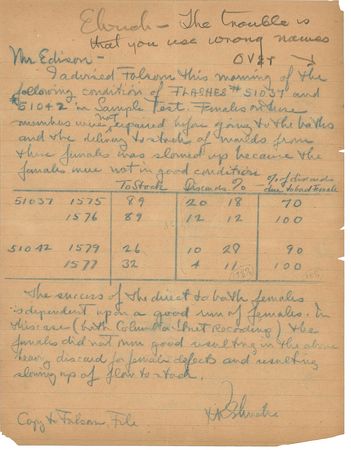 Eluod - The trouble is
that you use wrong names
over →
Mr Edison -
I advised Folsom this morning of the
following condition of FLASHES #51037 and
#51042 in Sample Test. Females on these
numbers were not repaired before going to the baths
and the delivery to stock of moulds from
these females was slowed up because the
females were not in good condition
To Stock Discards % % of discards
due to bad female
51037 1575 89 20 18 70
1576 89 12 12 100
51042 1579 26 10 28 90
1577 32 4 11 100
The success of the direct to bath females
is dependent upon a good run of females. In
this case (with Columbia Unit Recording) the
females did not run good resulting in the above
heavy discard for female defects and resulting
slowing up of flow to stock.
Copy to Folsom, File